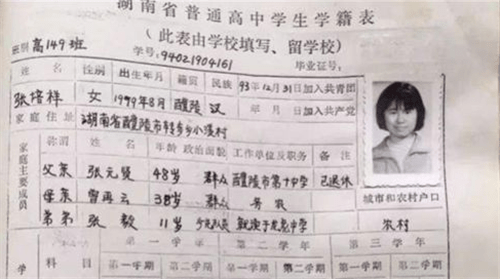 湖南省普通高中学生学籍表
(此表由学校填写、留学校)
班别 高149班 学号:94021904161 毕业证号:
姓名 性别 出生年月 籍贯 民族 93年12月31日加入共青团
张培祥 女 1979年8月 醴陵 汉 年 月 日加入共产党
家庭住址 湖南省醴陵市转步乡小溪村
家庭主要成员 称谓 姓名 年龄 政治面貌 工作单位及职务 备注
父亲 张元贤 48岁 群众 醴陵市第十中学 已退休
母亲 曾再云 38岁 群众 务农
弟弟 张毅 11岁 少先队员 就读于 中学
城市和农村户口
农村
学期 第一学年 第二学年 第三学年
学科 第一学期 第二学期 第一学期 第二学期 第一学期 第二学期